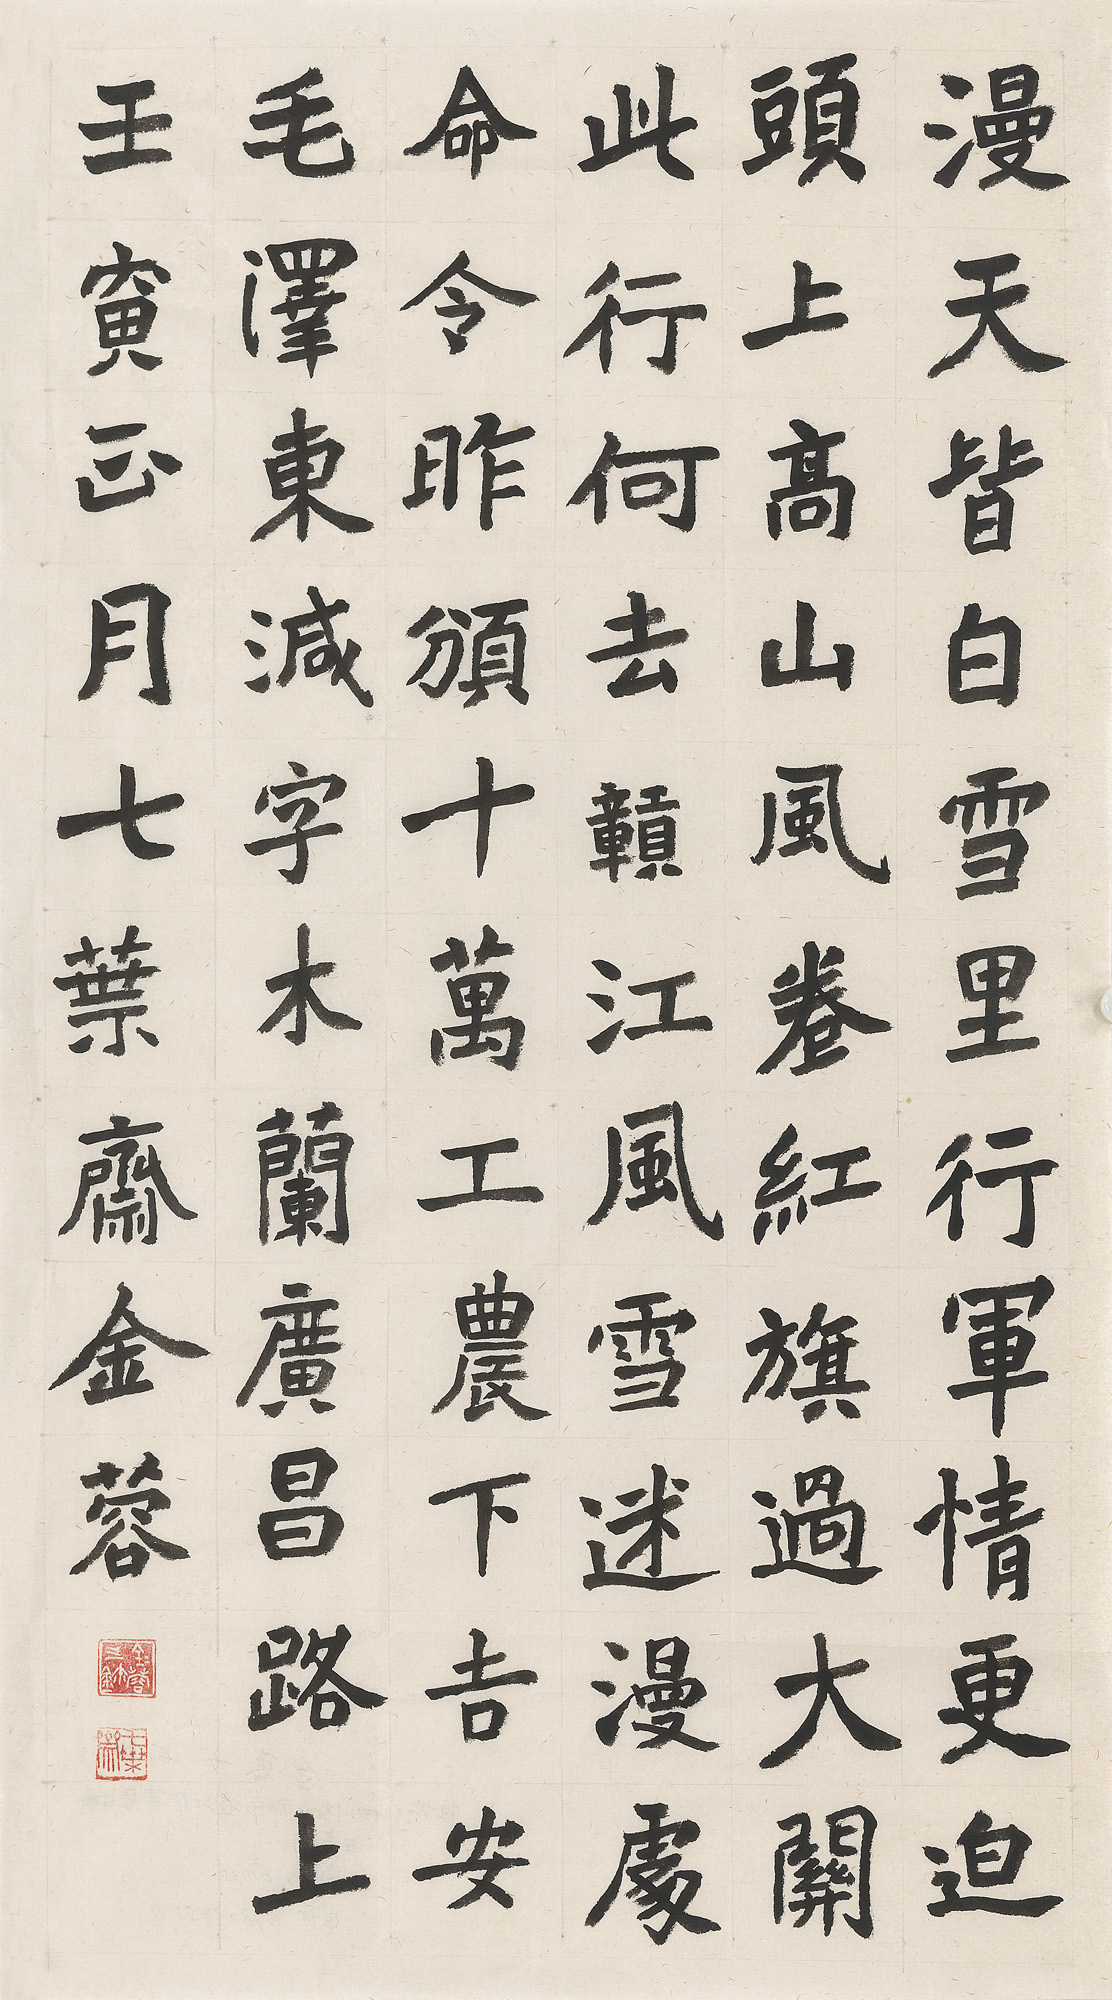 漫天皆白雪里行軍情更迫
頭上高山風卷紅旗過大關
此行何去贛江風雪迷漫處
命令昨頒十萬工農下吉安
毛澤東減字木蘭廣昌路上
壬寅正月七葉齋金蓉